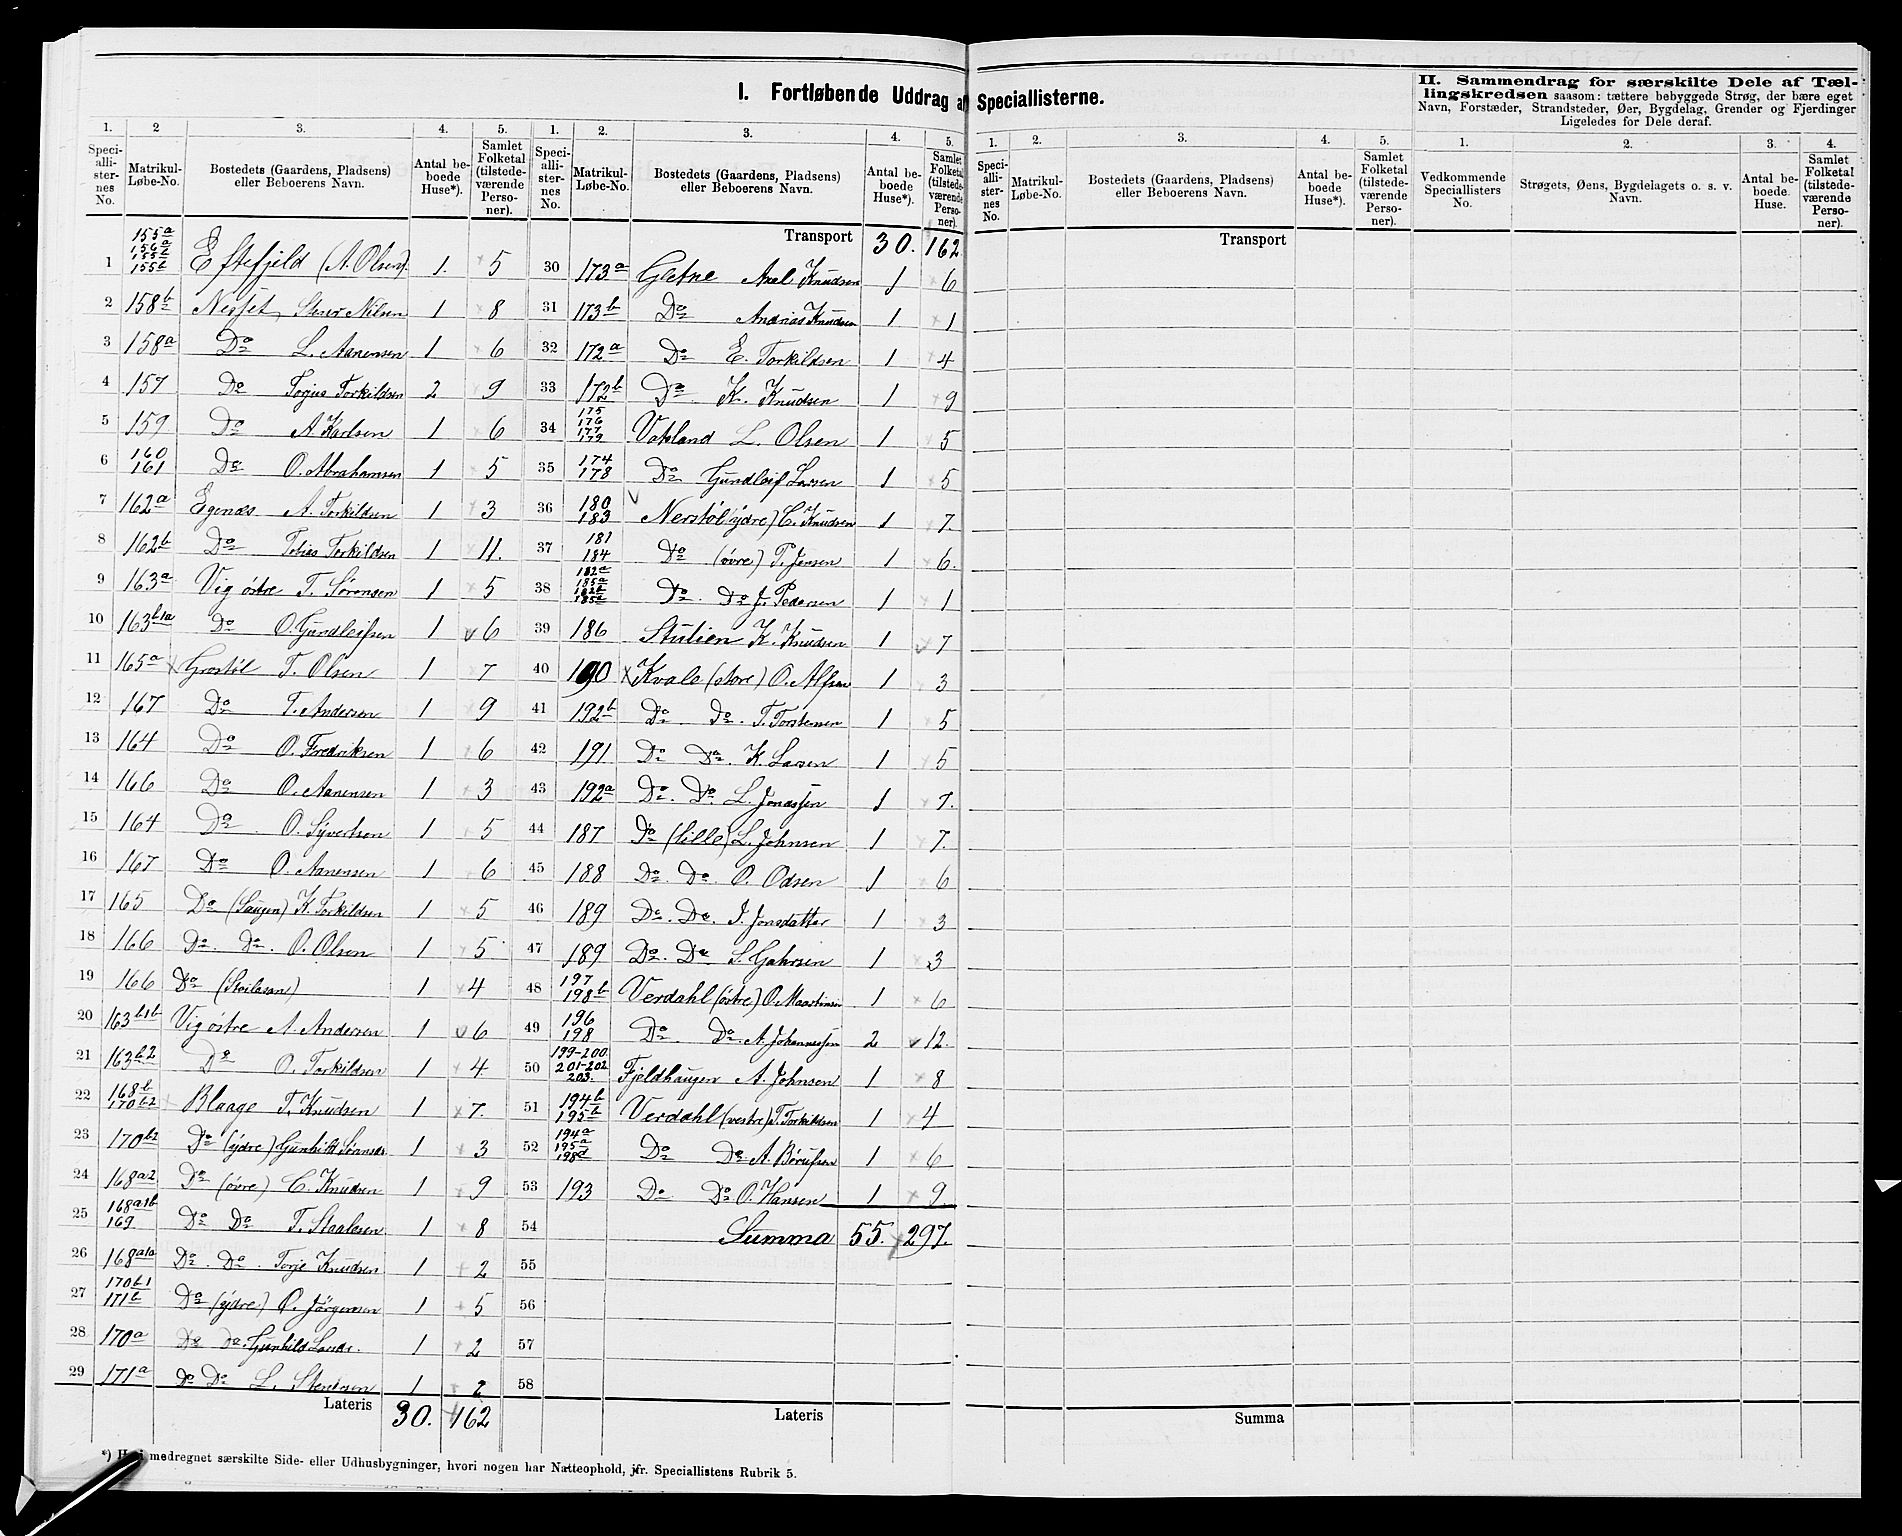 I. Fortløbende Uddrag af Speciallisterne.
II. Sammendrag for særskilte Dele af Tæl-
lingskredsen saasom: tættere bebyggede Strøg, der bære eget
Navn, Forstæder, Strandsteder, Øer, Bygdelag, Grender og Fjerdinger
Ligeledes for Dele deraf.
1. 2 3. 4. 5.
Speci-alli-ster-nes No. Matrikul-Løbe-No. Bostedets (Gaardens, Pladsens) eller Beboerens Navn. Antal be-boede Huse*). Samlet Folketal (tilstede-værende Perso-ner).
1 155a 156a 155b 155b Eftefjeld (A. Olsen). 1. 5
2 158b Nesset Stener Nilsen 1 8
3 158a Do L. Aanensen 1 6
4 157 Do Torjus Torkildsen 2 9
5 159 Do A. Karlsen 1 6
6 160 161 Do O. Abrahamsen 1 5
7 162a Egenæs A. Torkildsen 1 3
8 162b Do Tobias Torkildsen 1 11.
9 163a Vig østre T. Sørensen 1 5
10 163b1a Do O. Gundleifsen 1 6
11 165a Grostøl T. Olsen 1 7
12 167 Do T. Andersen 1 9
13 164 Do O. Fredriksen 1 6
14 166 Do O. Aanensen 1 3
15 164 Do O. Syvertsen 1 5
16 167 Do O. Aanensen 1 6
17 165 Do (Haugen) K. Torkildsen 1 5
18 166 Do Do. O. Olsen 1 5
19 166 Do 1 4
20 163b1b Vig østre A. Andersen 1 6
21 163b2 Do O. Torkildsen 1 4
22 168b 170b2 Blaage T. Knudsen 1 7.
23 170b2 Do (ydre) Gunhild 1 3
24 168a2 Do (øvre) C. Knudsen 1 9
25 168a1b 169 Do Do T. Staalesen 1 8
26 168a1a Do. Do. Torje Knudsen 1 2
27 170b1 171b Do (ydre) O. Jörgensen 1 5
28 170a Do Do Gunhild 1 2
29 171a Do Do L. Stensen 1 2
Lateris 30. 162
1. 2. 3. 4. 5.
Speci-alli-ster-nes No. Matrikul-Løbe-No. Bostedets (Gaardens, Pladsens) eller Beboerens Navn. Antal be-boede Huse*). Samlet Folketal (tilstede-værende Perso-ner).
Transport 30. 162
30 173a Gletne Axel Knudsen 1 6
31 173b Do Andrias Knudsen 1 1
32 172a Do E. Torkildsen 1 4
33 172b Do K. Knudsen 1 9
34 175 176 177 179 Vatsland L. Olsen 1 5
35 174 178 Do Gundleif Larsen 1 5
36 180 183 Nerstøl (ydre) C. Knudsen 1 7.
37 181 184 Do (øvre) P. Jensen 1 6.
38 182a 185a 182b 185a Do. Do J. Pedersen 1 1
39 186 Stulien K. Knudsen 1 7
40 190 Kvale (store) O. Alfsen 1 3
41 192b Do Do. T. Torstensen 1 5
42 191 Do Do. K. Larsen 1 5
43 192a Do. Do. L. Jonassen 1 7.
44 187 Do (lille) L. Johnsen 1 7.
45 188 Do. Do. O. Odsen 1 6
46 189 Do. Do. I. Jonsdatter 1 3
47 189 Do. Do 1 3
48 197 198b Verdahl (östre) O. Maartensen 1 6
49 196 198 Do. Do. A. Johannessen 2 12.
50 199-200 201-202 203. Fjeldhaugen A. Johnsen 1 8
51 194b 195b Verdahl (vestre) T. Torkildsen 1 4
52 194a 195a 198d Do Do A. Börufsen 1 6
53 193 Do Do O. Hansen 1 9
54 Summa 55. 297.
55
56
57
58
Lateris
1. 2. 3. 4. 5.
Speci-alli-ster-nes No. Matrikul-Løbe-No. Bostedets (Gaardens, Pladsens) eller Beboerens Navn. Antal be-boede Huse*). Samlet Folketal (tilstede-værende Perso-ner).
Transport
Summa
1. 2. 3. 4.
Vedkommende Speciallisters No. Strøgets, Øens, Bygdelagets o. s. v. Navn. Antal be-boede Huse. Samlet Folketal (tilstede-værende Perso-ner).
*) Heri medregnet særskilte Side- eller Udhusbygninger, hvori nogen har Natteophold, jfr. Speciallistens Rubrik 5.